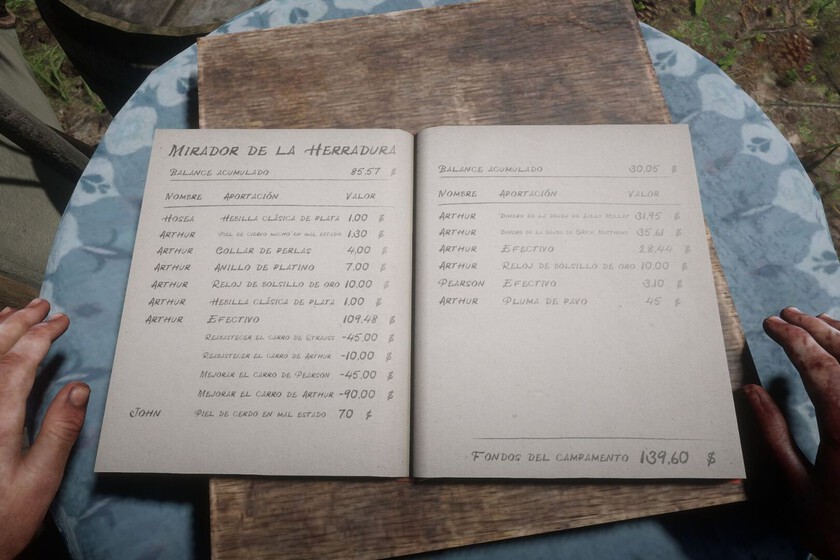 MIRADOR DE LA HERRADURA
BALANCE ACUMULADO 85.57 $
NOMBRE APORTACIÓN VALOR
HOSEA HEBILLA CLÁSICA DE PLATA 1.00 $
ARTHUR PIEL DE CIERVO MACHO EN MAL ESTADO 1.30 $
ARTHUR COLLAR DE PERLAS 4.00 $
ARTHUR ANILLO DE PLATINO 7.00 $
ARTHUR RELOJ DE BOLSILLO DE ORO 10.00 $
ARTHUR HEBILLA CLÁSICA DE PLATA 1.00 $
ARTHUR EFECTIVO 109.48 $
REABASTECER EL CARRO DE STRAUSS -45.00 $
REABASTECER EL CARRO DE ARTHUR -10.00 $
MEJORAR EL CARRO DE PEARSON -45.00 $
MEJORAR EL CARRO DE ARTHUR -90.00 $
JOHN PIEL DE CERDO EN MAL ESTADO 70 $
BALANCE ACUMULADO 30.05 $
NOMBRE APORTACIÓN VALOR
ARTHUR DINERO DE LA DEUDA DE 31.95 $
ARTHUR DINERO DE LA DEUDA DE 35.61 $
ARTHUR EFECTIVO 28.44 $
ARTHUR RELOJ DE BOLSILLO DE ORO 10.00 $
PEARSON EFECTIVO 3.10 $
ARTHUR PLUMA DE PAVO 45 $
FONDOS DEL CAMPAMENTO 139.60 $